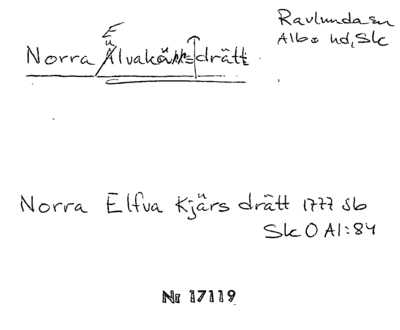 Ravlunda sn
Albo hd, Sk
E
Norra Älvakärrsdrätt
Norra Elfva Kjärs drätt 1777 Sb
Sk O Al:84
Nr 17119